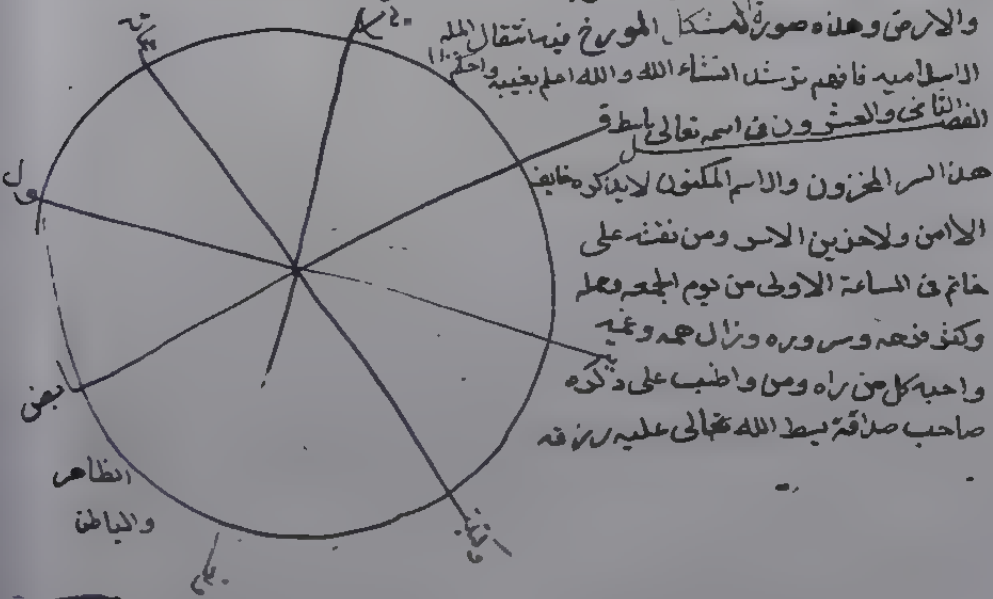 والارض وهذه صورة المشكل المورخ فيه انتقال المله
الاسلاميه فافهم ترشد انشاء الله والله اعلم بغيبه واحكم
الفصل الثانى والعشرون فى اسمه تعالى باسط
هذا السر المخزون والاسم المكنون لا يذكره خايف
الا امن ولا حزين الا سر ومن نقشه على
خاتم فى الساعة الاولى من يوم الجمعه وحمله
وكثر فرحه وسروره وزال همه وغمه
واحبه كل من راه ومن واظب على ذكره
صاحب صداقة بسط الله تعالى عليه رزقه
ول
ابض
الظاهر
والباطن